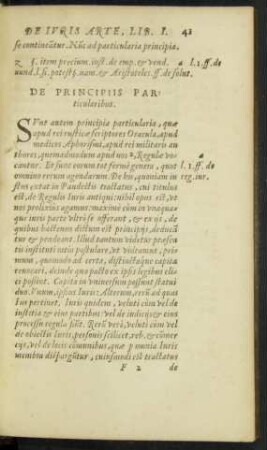 DE IVRIS ARTE, LIB. I. 42
se continetur. Nūc ad particularia principia.
z §. item precium. inst. de emp. & vend. a l. 1. ff. de
DE PRINCIPIIS PAR-
ticularibus.
SVnt autem principia particularia, quæ
apud rei rusticæ scriptores Oracula, apud
medicos Aphorismi, apud rei militaris au
thores, quemadmodum apud nos a, Regulæ vo a
cantur. Et sunt earum tot fermè genera, quot l. 1. ff. de
omnino rerum agendarum. De his, quoniam in reg. iur.
stus extat in Pandectis tractatus, cui titulus
est, de Regulis Iuris antiqui: nihil opus est, vt
nos prolixius agamus: maximè cùm in vnaqua
que iuris parte vltrò se offerant, & ex ijs, de
quibus hactenus dictum est principijs, deducā
tur & pendeant. Illud tantum videtur præsen
tis instituti nostri postulare, vt videamus, pri
mùm, quomodo ad certa, distinctáque capita
reuocari, deinde quo pacto ex ipsis legibus elici
possint. Capita in vniuersum possunt statui
duo. Vnum, ipsius Iuris: Alterum, rerū ad quas
Ius pertinet. Iuris quidem, veluti cùm vel de
iustitia & eius partibus: vel de iudicijs & eius
processu regula sit. Rerū verò, veluti cùm vel
de obiectis Iuris, personis scilicet, reb. & cōmer
cijs, vel de locis cōmunibus, quæ p omnia Iuris
membra dispargūtur, cuiusmodi est tractatus
F 2 de